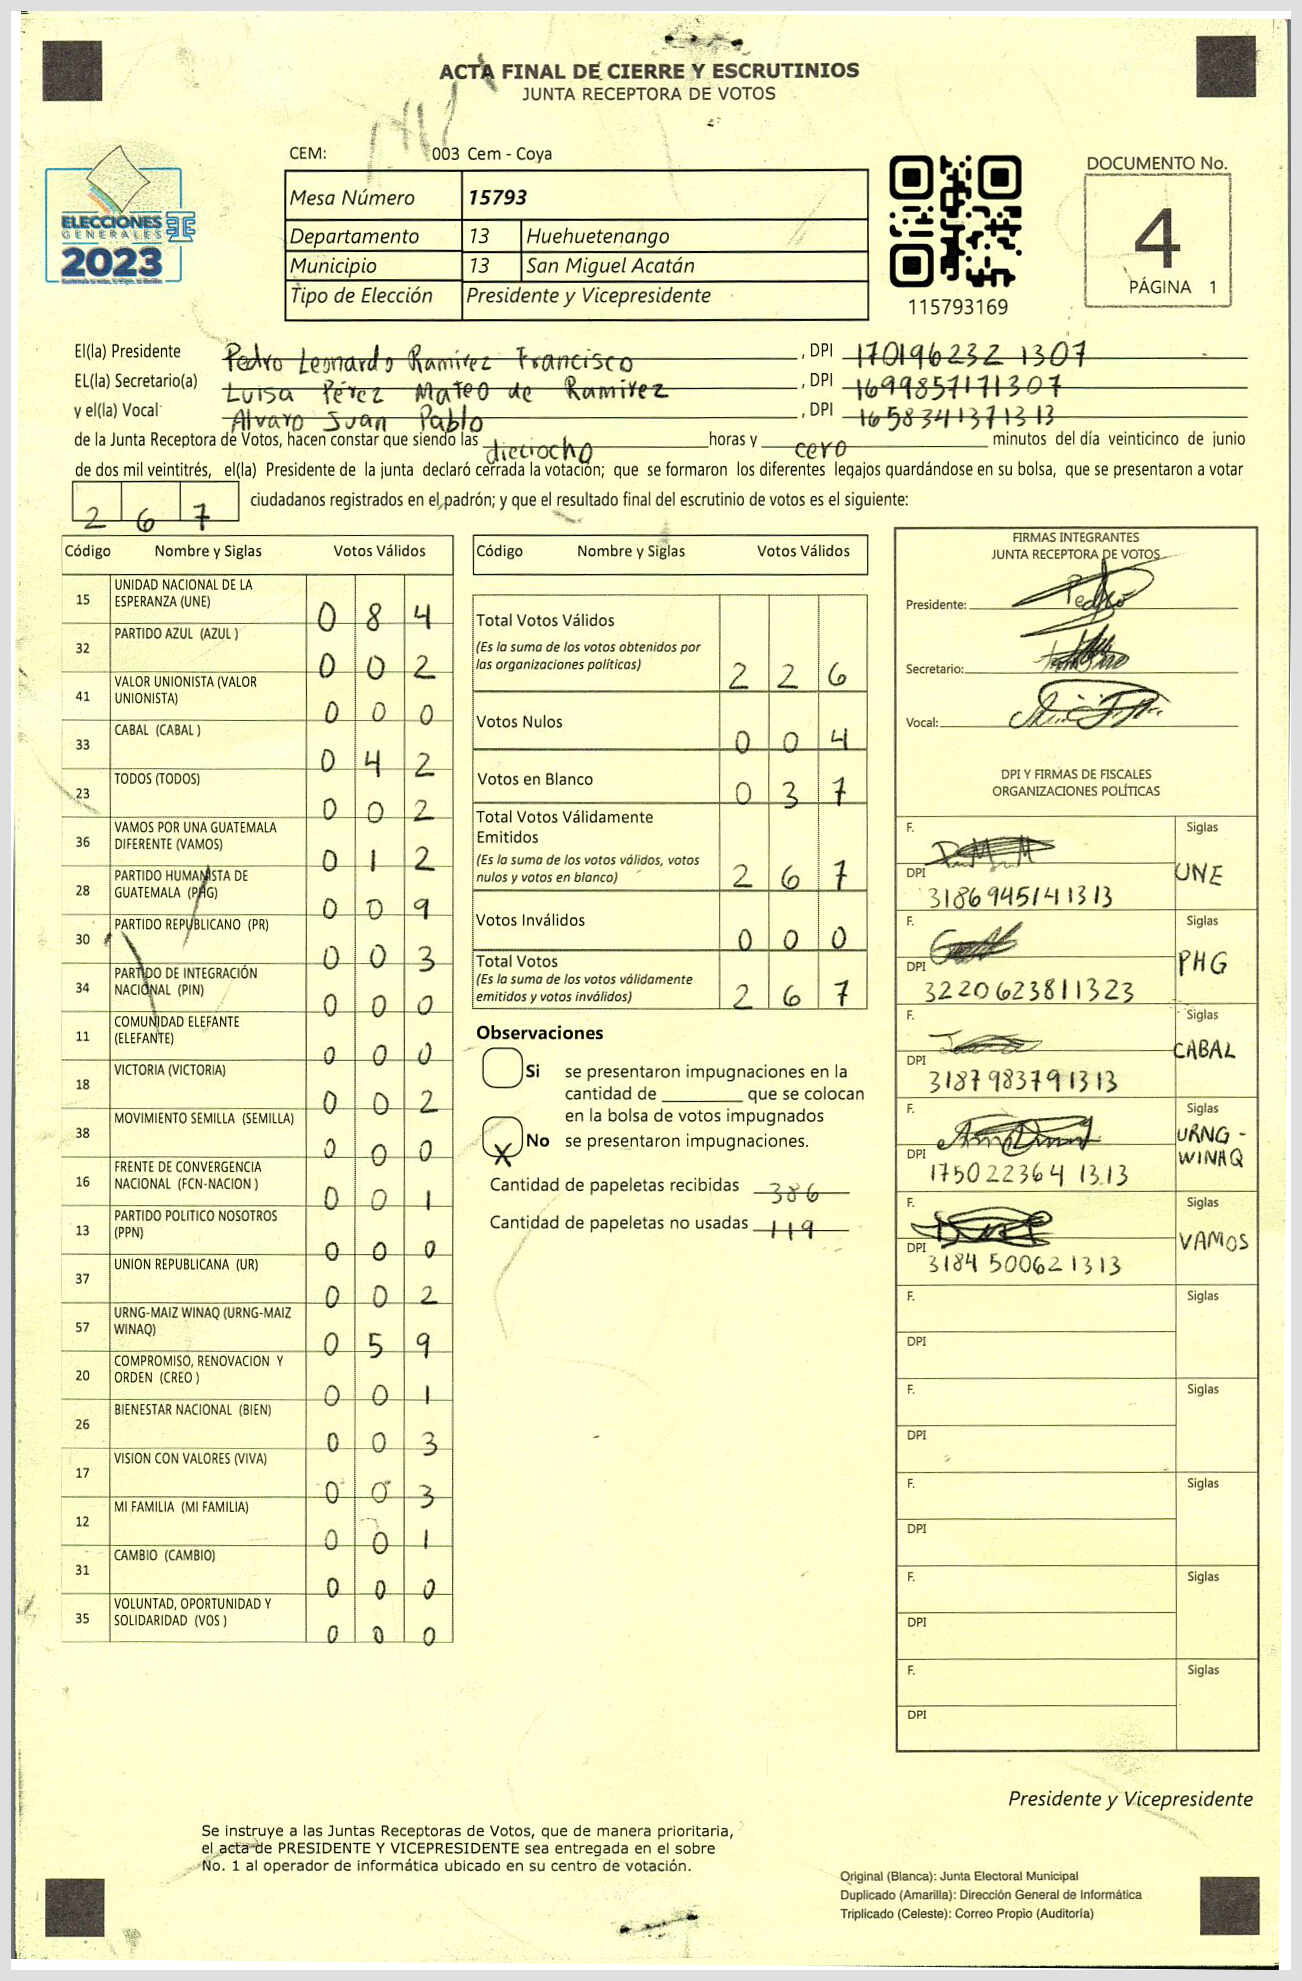 ACTA FINAL DE CIERRE Y ESCRUTINIOS
JUNTA RECEPTORA DE VOTOS
CEM: 003 Cem - Coya
Mesa Número 15793
Departamento 13 Huehuetenango
Municipio 13 San Miguel Acatán
Tipo de Elección Presidente y Vicepresidente
ELECCIONES
GENERALES
2023
115793169
DOCUMENTO No.
4
PÁGINA 1
El(la) Presidente Pedro Leonardo Ramirez Francisco, DPI 170196232 1307
EL(la) Secretario(a) Luisa Pérez Mateo de Ramirez, DPI 1699857171307
y el(la) Vocal Alvaro Juan Pablo, DPI 1658341371313
de la Junta Receptora de Votos, hacen constar que siendo las dieciocho horas y cero minutos del día veinticinco de junio
de dos mil veintitrés, el(la) Presidente de la junta declaró cerrada la votación; que se formaron los diferentes legajos guardándose en su bolsa, que se presentaron a votar
2 6 7 ciudadanos registrados en el padrón; y que el resultado final del escrutinio de votos es el siguiente:
Código Nombre y Siglas Votos Válidos
15 UNIDAD NACIONAL DE LA ESPERANZA (UNE) 0 8 4
32 PARTIDO AZUL (AZUL ) 0 0 2
41 VALOR UNIONISTA (VALOR UNIONISTA) 0 0 0
33 CABAL (CABAL ) 0 4 2
23 TODOS (TODOS) 0 0 2
36 VAMOS POR UNA GUATEMALA DIFERENTE (VAMOS) 0 1 2
28 PARTIDO HUMANISTA DE GUATEMALA (PHG) 0 0 9
30 PARTIDO REPUBLICANO (PR) 0 0 3
34 PARTIDO DE INTEGRACIÓN NACIONAL (PIN) 0 0 0
11 COMUNIDAD ELEFANTE (ELEFANTE) 0 0 0
18 VICTORIA (VICTORIA) 0 0 2
38 MOVIMIENTO SEMILLA (SEMILLA) 0 0 0
16 FRENTE DE CONVERGENCIA NACIONAL (FCN-NACION ) 0 0 1
13 PARTIDO POLITICO NOSOTROS (PPN) 0 0 0
37 UNION REPUBLICANA (UR) 0 0 2
57 URNG-MAIZ WINAQ (URNG-MAIZ WINAQ) 0 5 9
20 COMPROMISO, RENOVACION Y ORDEN (CREO ) 0 0 1
26 BIENESTAR NACIONAL (BIEN) 0 0 3
17 VISION CON VALORES (VIVA) 0 0 3
12 MI FAMILIA (MI FAMILIA) 0 0 1
31 CAMBIO (CAMBIO) 0 0 0
35 VOLUNTAD, OPORTUNIDAD Y SOLIDARIDAD (VOS ) 0 0 0
Código Nombre y Siglas Votos Válidos
Total Votos Válidos
(Es la suma de los votos obtenidos por
las organizaciones políticas) 2 2 6
Votos Nulos 0 0 4
Votos en Blanco 0 3 7
Total Votos Válidamente
Emitidos
(Es la suma de los votos válidos, votos
nulos y votos en blanco) 2 6 7
Votos Inválidos 0 0 0
Total Votos
(Es la suma de los votos válidamente
emitidos y votos inválidos) 2 6 7
Observaciones
Si se presentaron impugnaciones en la
cantidad de ________ que se colocan
en la bolsa de votos impugnados
X No se presentaron impugnaciones.
Cantidad de papeletas recibidas 386
Cantidad de papeletas no usadas 119
FIRMAS INTEGRANTES
JUNTA RECEPTORA DE VOTOS
Presidente: Pedro
Secretario:
Vocal:
DPI Y FIRMAS DE FISCALES
ORGANIZACIONES POLÍTICAS
F. Siglas
DPI 3186945141313 UNE
F. Siglas
DPI 3220623811323 PHG
F. Siglas
DPI 3187983791313 CABAL
F. Siglas
DPI 175022364 1313 URNG - WINAQ
F. Siglas
DPI 3184 50062 1313 VAMOS
F. Siglas
DPI
F. Siglas
DPI
F. Siglas
DPI
F. Siglas
DPI
F. Siglas
DPI
Presidente y Vicepresidente
Se instruye a las Juntas Receptoras de Votos, que de manera prioritaria,
el acta de PRESIDENTE Y VICEPRESIDENTE sea entregada en el sobre
No. 1 al operador de informática ubicado en su centro de votación.
Original (Blanca): Junta Electoral Municipal
Duplicado (Amarilla): Dirección General de Informática
Triplicado (Celeste): Correo Propio (Auditoría)